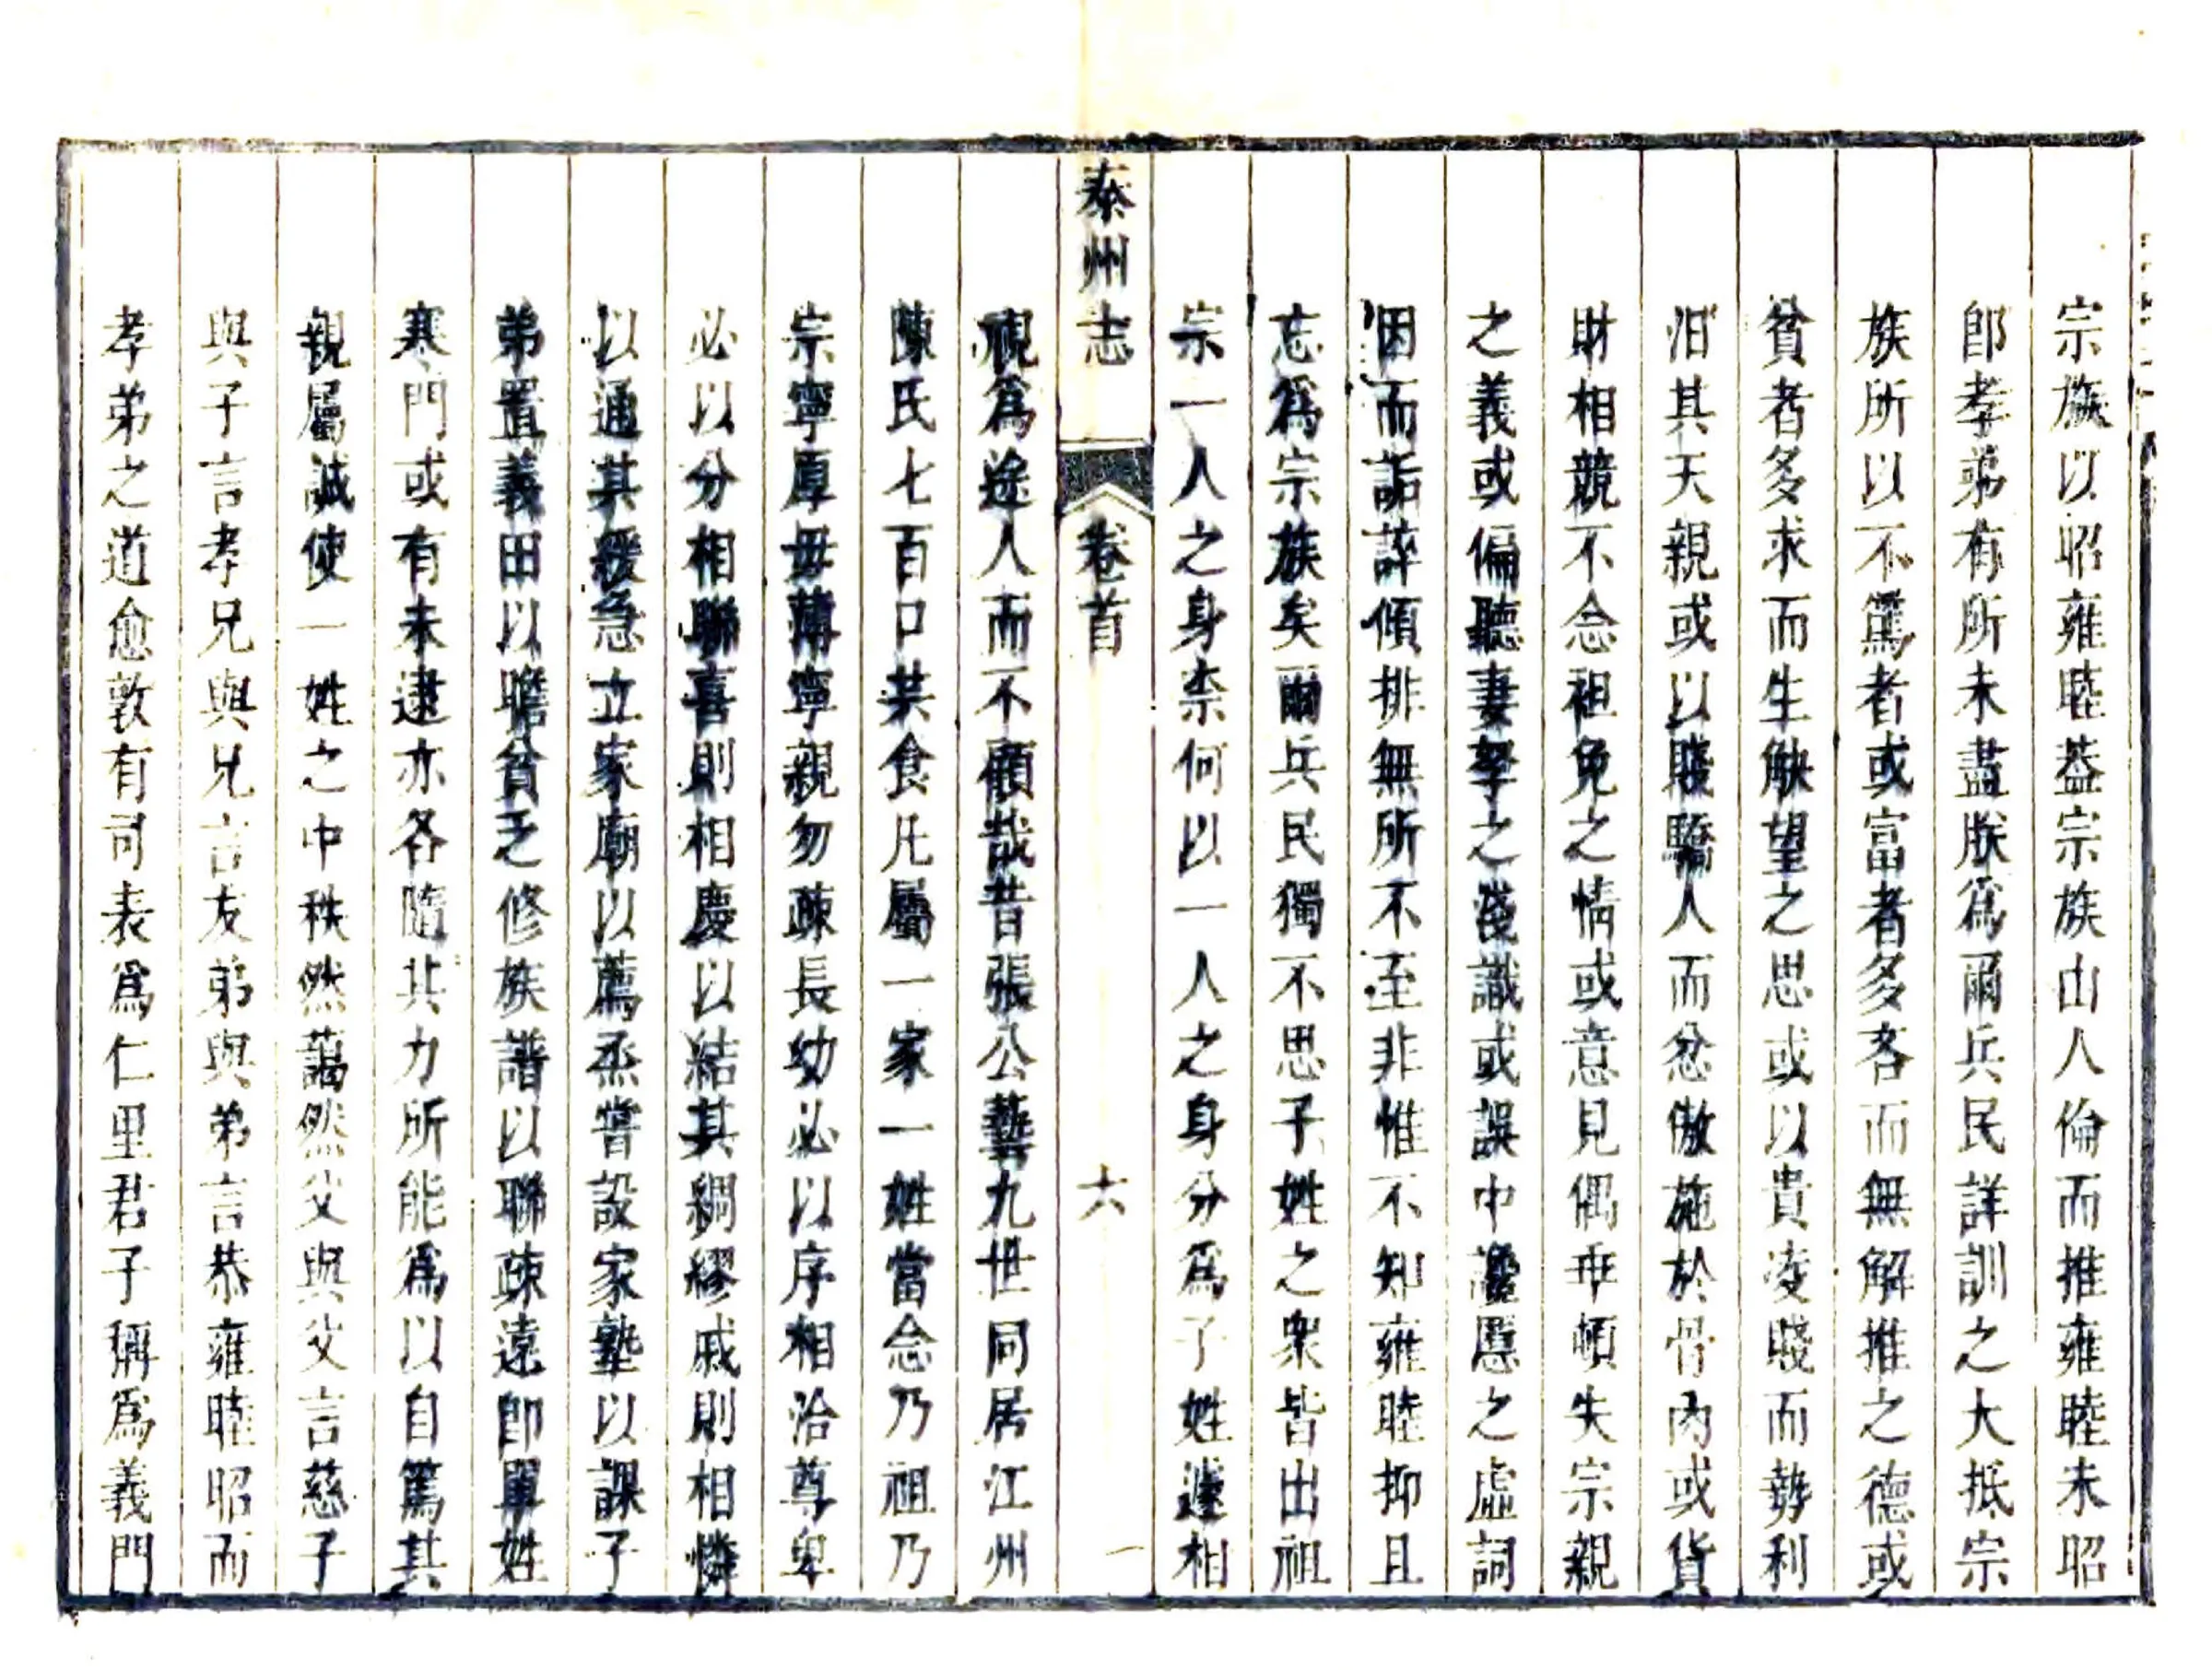 宗族以昭雍睦葢宗族由人倫而推雍睦未昭
卽孝弟有所未盡朕爲爾兵民詳訓之大抵宗
族所以不篤者或富者多吝而無解推之德或
貧者多求而生觖望之思或以貴凌賤而勢利
汨其天親或以賤驕人而忿傲施於骨肉或貨
財相競不念袒免之情或意見偶乖頓失宗親
之義或偏聽妻孥之淺識或誤中讒慝之虛詞
因而詬誶傾排無所不至非惟不知雍睦抑且
忘爲宗族矣爾兵民獨不思子姓之衆皆出祖
宗一人之身柰何以一人之身分爲子姓遽相
泰州志 卷首 六
視爲途人而不顧哉昔張公藝九世同居江州
陳氏七百口共食凡屬一家一姓當念乃祖乃
宗寧厚毋薄寧親勿疎長幼必以序相洽尊卑
必以分相聯喜則相慶以結其綢繆戚則相憐
以通其緩急立家廟以薦烝嘗設家塾以課子
弟置義田以贍貧乏修族譜以聯疎遠卽單姓
寒門或有未逮亦各隨其力所能爲以自篤其
親屬誠使一姓之中秩然藹然父與父言慈子
與子言孝兄與兄言友弟與弟言恭雍睦昭而
孝弟之道愈敦有司表爲仁里君子稱爲義門